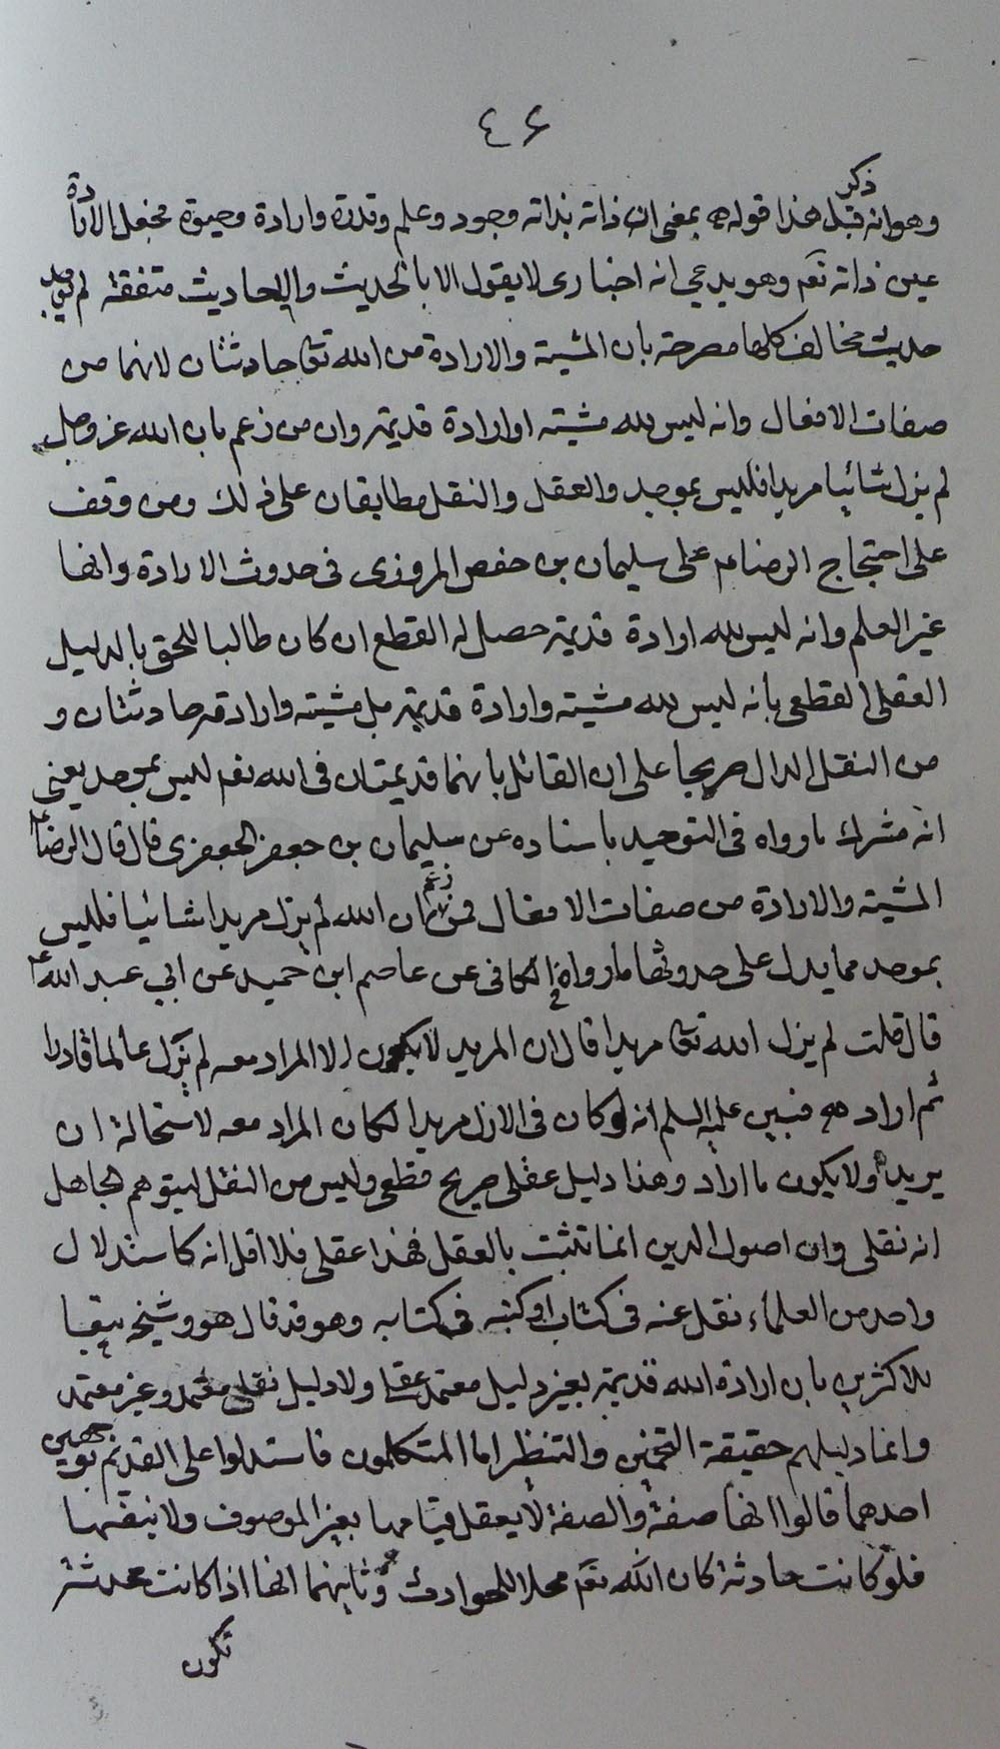 ٤۶
ذكر
وهو انه قبل هذا قوله بمعنى ان ذاته بذاته وجود وعلم وقدرة وارادة وحيوة فجعل الارادة
عين ذاته تعم وهو يدعي انه اخبارى لا يقول الا بالحديث والاحاديث متفقة لم يوجد
حديث مخالف كلها مصرحة بان المشية والارادة من الله تعا حادثتان لانهما من
صفات الافعال وانه ليس لله مشية او ارادة قديمة وان من زعم بان الله عز وجل
لم يزل شائيا مريدا فليس بموحد والعقل والنقل مطابقان على ذلك ومن وقف
على احتجاج الرضاء على سليمان بن حفص المروزى فى حدوث الارادة وانها
غير العلم وانه ليس لله ارادة قديمة حصل له القطع ان كان طالبا للحق بالدليل
العقلى القطعى بانه ليس لله مشية وارادة قديمة بل مشية وارادته حادثتان و
من النقل الدال صريحا على ان القائل بانهما قديمتان فى الله تعم ليس بموحد يعنى
انه مشرك ما رواه فى التوحيد باسناده عن سليمان بن جعفر الجعفرى قال قال الرضا ع
المشية والارادة من صفات الافعال فمن زعم ان الله لم يزل مريدا شائيا فليس
بموحد مما يدل على حدوثها ما رواه فى الكافى عن عاصم ابن حميد عن ابي عبد الله ع
قال قلت لم يزل الله تعا مريدا قال ان المريد لا يكون الا المراد معه لم يزل عالما قادرا
ثم اراد هـ فبين عليه السلم انه لو كان فى الازل مريدا لكان المراد معه لاستحالة ان
يريد ولا يكون ما اراد وهذا دليل عقلى صريح قطعى وليس من النقل ليتوهم الجاهل
انه نقلى وان اصول الدين انما تثبت بالعقل فهذا عقلى فلا اقل انه كاستدلال
واحد من العلماء نقل عنه فى كتاب او كتبه فى كتابه وهو قد قال هو وشيخه تبعا
للاكثرين بان ارادة الله قديمة بغير دليل معتمد عقلى ولا دليل نقلى معتمد وغير معتمد
وانما دليلهم حقيقة التخمين والتنظر اما المتكلمون فاستدلوا على القديم بوجهين
احدهما قالوا انها صفة والصفة لا يعقل قيامها بغير الموصوف ولا بنفسها
فلو كانت حادثة كان الله تعم محلا للحوادث وثانيهما انها اذا كانت محدثة
تكون